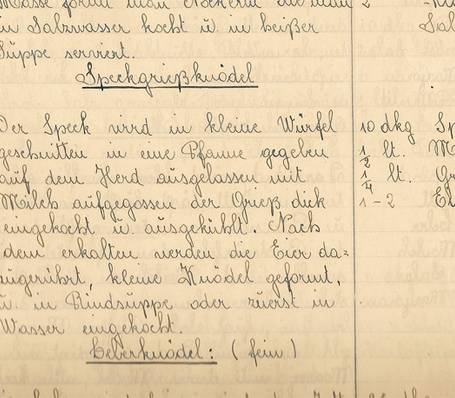 in Salzwasser kocht u. in heißer
Suppe serviert.
Speckgrießknödel
Der Speck wird in kleine Würfel
geschnitten in eine Pfanne gegeben
auf dem Herd ausgelassen mit
Milch aufgegossen der Grieß dick
eingekocht u. ausgekühlt. Nach
dem erkalten werden die Eier da=
zugerührt, kleine Knödel geformt,
u. in Rindsuppe oder zuerst in
Wasser eingekocht.
Leberknödel: (fein)
10 dkg Sp
1/2 lt. M
1/4 lt. Gr
1-2 Ei